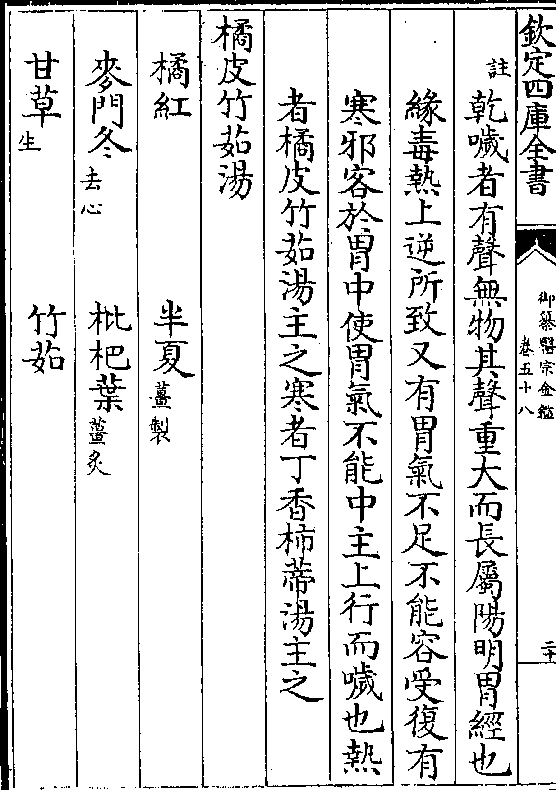 欽定四庫全書
御纂醫宗金鑑
卷五十八
二十
註乾噦者有聲無物其聲重大而長屬陽明胃經也
緣毒熱上逆所致又有胃氣不足不能容受復有
寒邪客於胃中使胃氣不能中主上行而噦也熱
者橘皮竹茹湯主之寒者丁香柿蒂湯主之
橘皮竹茹湯
橘紅 半夏薑製
麥門冬去心 枇杷葉薑炙
甘草生 竹茹